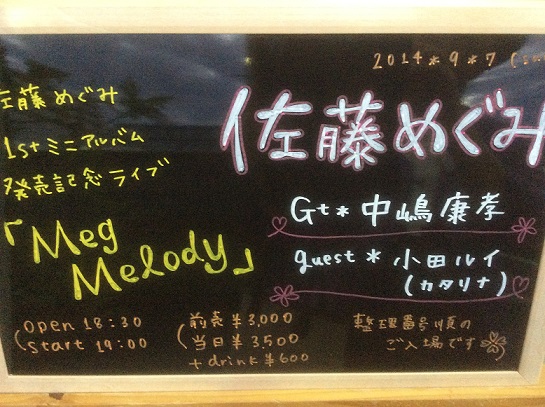 2014*9*7 (sun
佐藤めぐみ
佐藤めぐみ
1stミニアルバム
発売記念ライブ
「Meg
Melody」
Gt* 中嶋康孝
guest* 小田ルイ
(カタリナ)
open 18:30
start 19:00
前売¥3,000
当日¥3,500
+drink¥600
整理番号順の
ご入場です